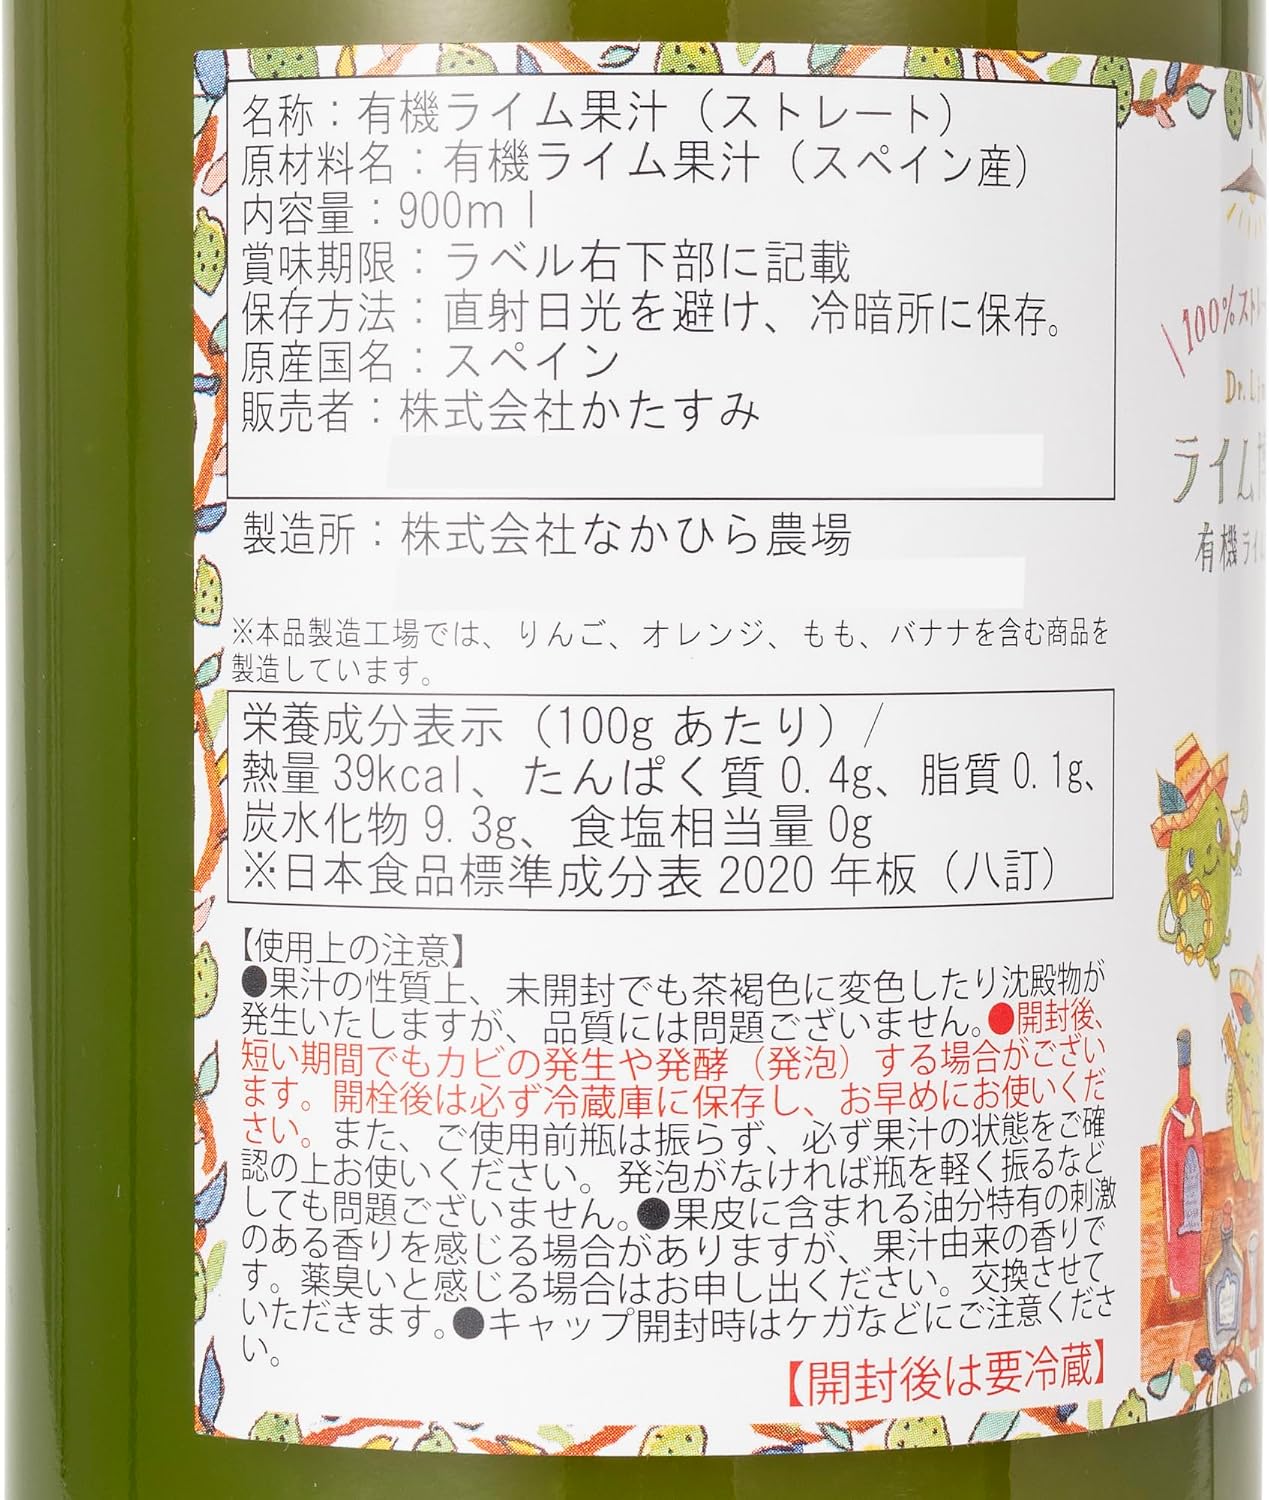 名称：有機ライム果汁（ストレート）
原材料名：有機ライム果汁（スペイン産）
内容量：900ml
賞味期限：ラベル右下部に記載
保存方法：直射日光を避け、冷暗所に保存。
原産国名：スペイン
販売者：株式会社かたすみ
製造所：株式会社なかひら農場
※本品製造工場では、りんご、オレンジ、もも、バナナを含む商品を
製造しています。
栄養成分表示（100gあたり）/
熱量39kcal、たんぱく質0.4g、脂質0.1g、
炭水化物9.3g、食塩相当量0g
※日本食品標準成分表2020年板（八訂）
【使用上の注意】
●果汁の性質上、未開封でも茶褐色に変色したり沈殿物が
発生いたしますが、品質には問題ございません。●開封後、
短い期間でもカビの発生や発酵（発泡）する場合がござい
ます。開栓後は必ず冷蔵庫に保存し、お早めにお使いくだ
さい。また、ご使用前瓶は振らず、必ず果汁の状態をご確
認の上お使いください。発泡がなければ瓶を軽く振るなど
しても問題ございません。●果皮に含まれる油分特有の刺激
のある香りを感じる場合がありますが、果汁由来の香りで
す。薬臭いと感じる場合はお申し出ください。交換させて
いただきます。●キャップ開封時はケガなどにご注意くださ
い。
【開封後は要冷蔵】
100%スト
Dr.
ライム
有機ライ